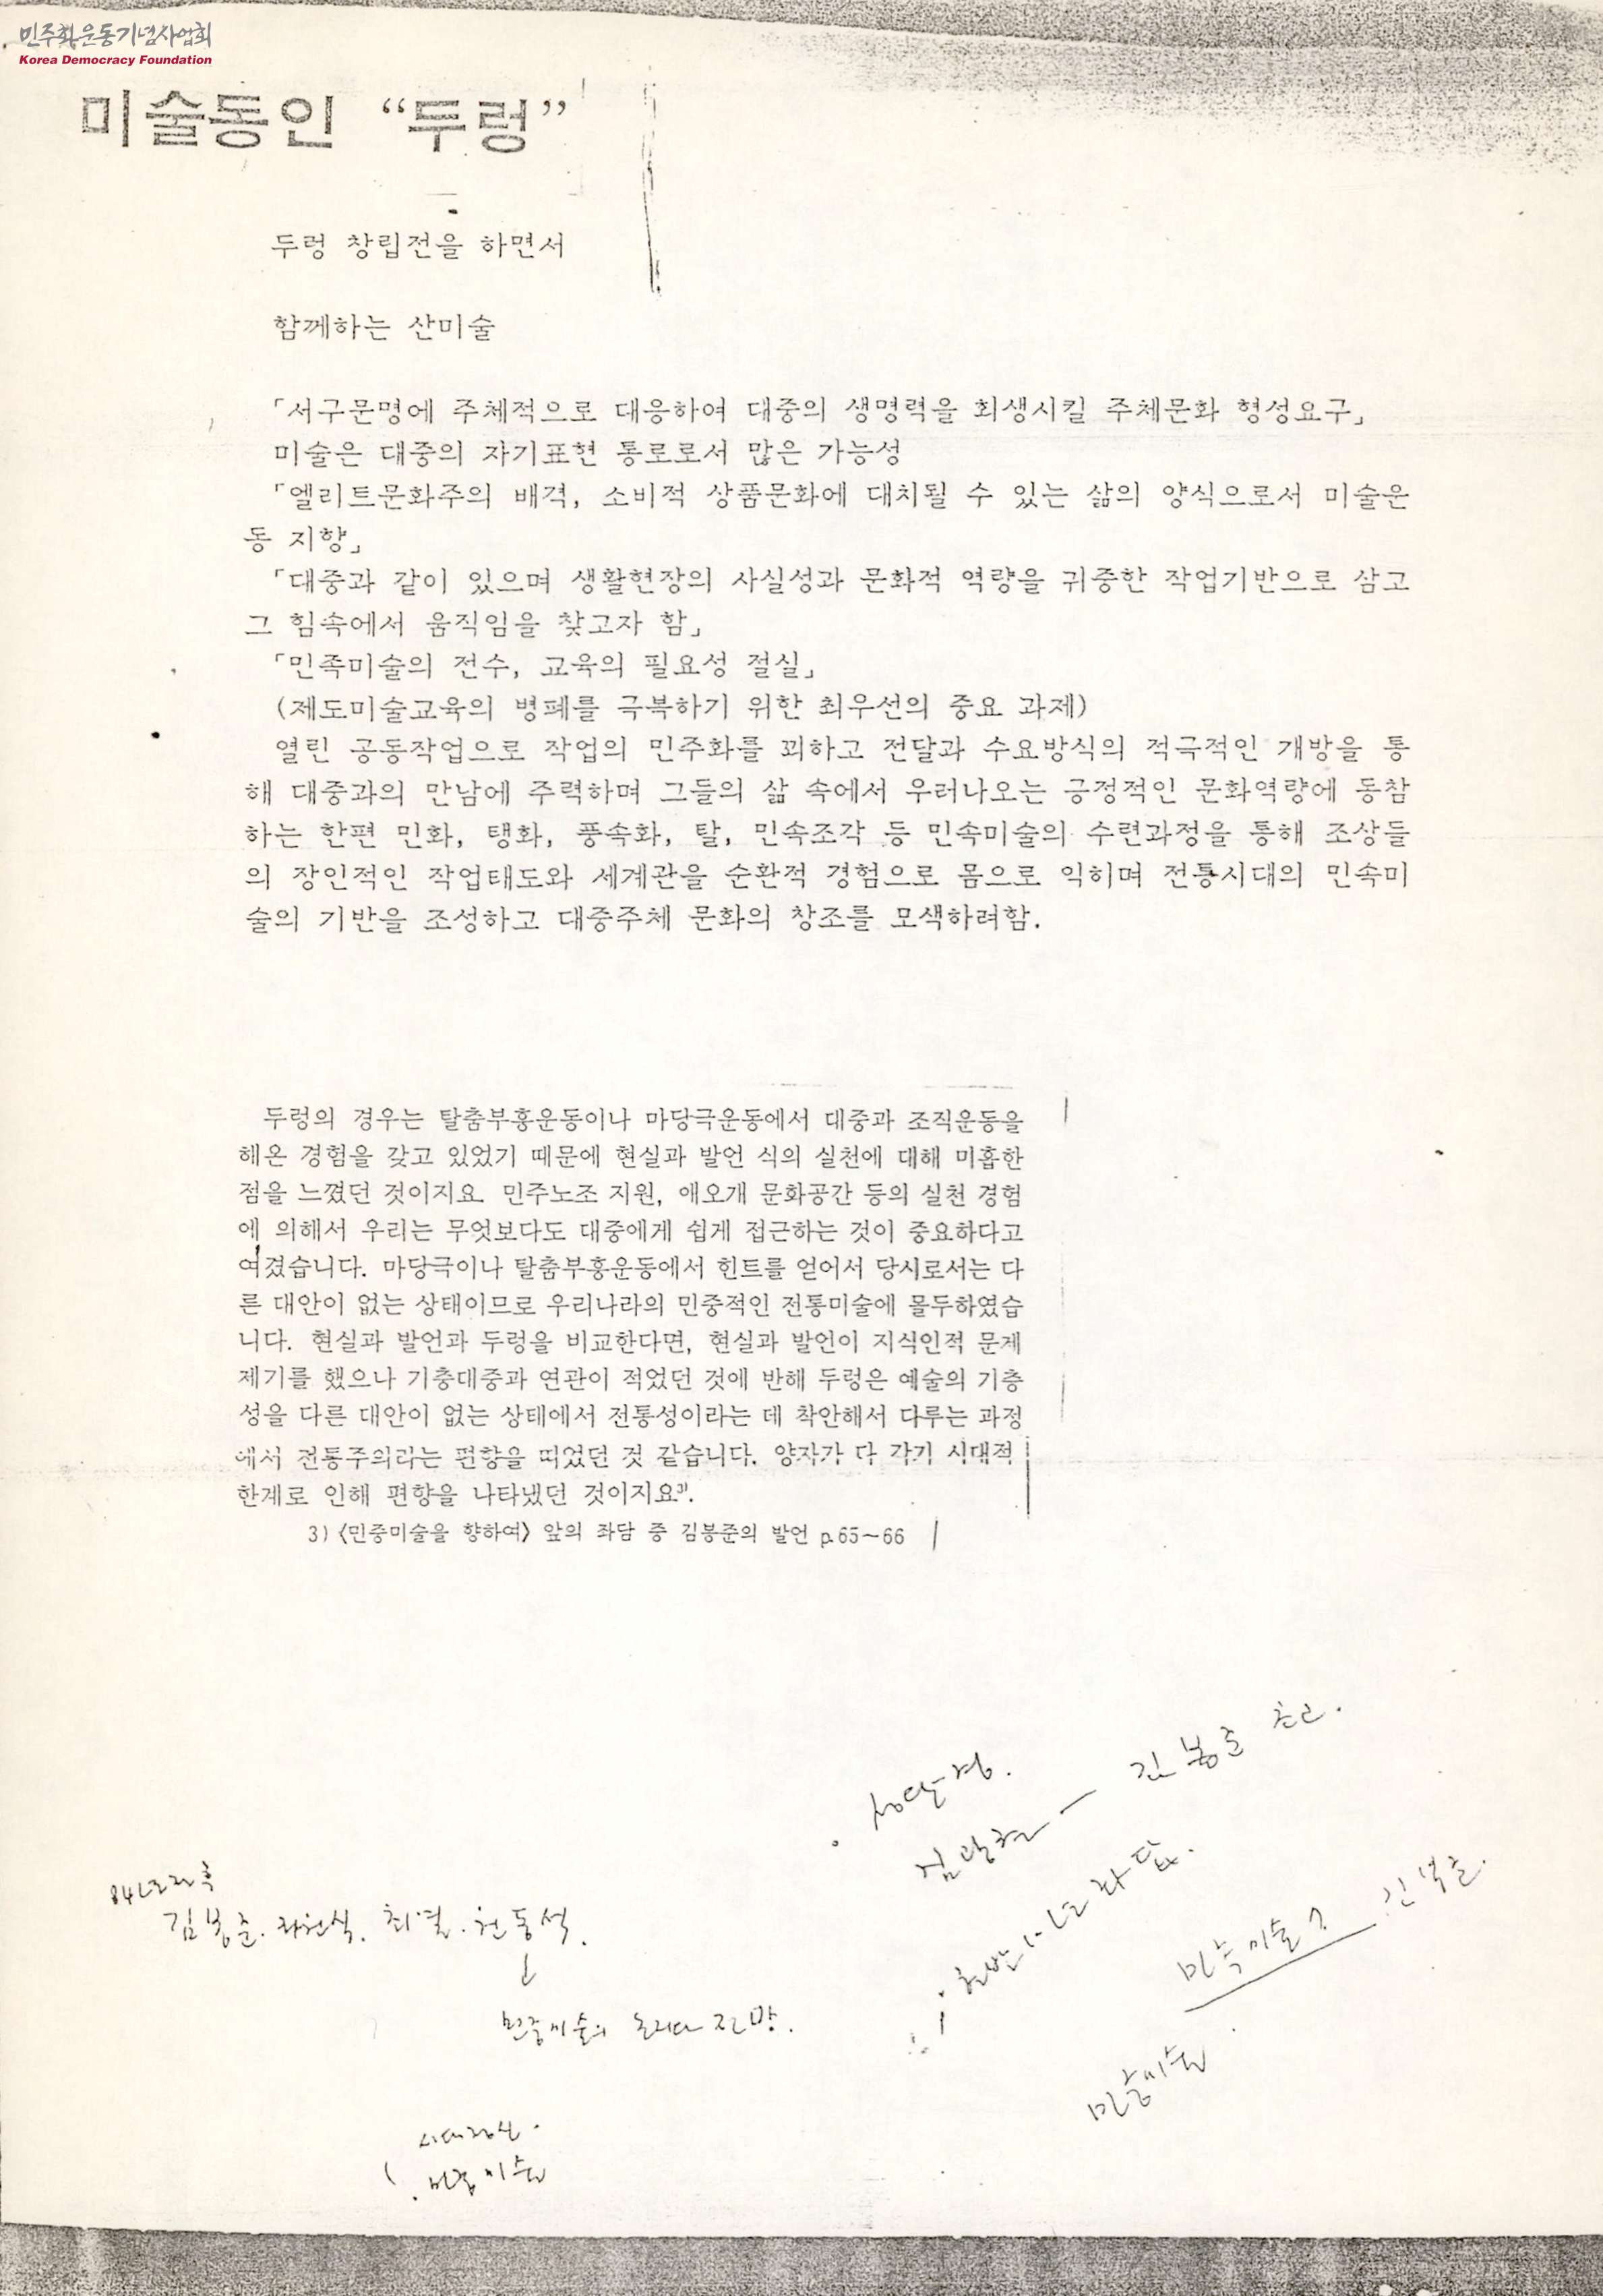 민주화운동기념사업회
Korea Democracy Foundation
미술동인 “두렁”
두렁 창립전을 하면서
함께하는 산미술
「서구문명에 주체적으로 대응하여 대중의 생명력을 회생시킬 주체문화 형성요구」
미술은 대중의 자기표현 통로로서 많은 가능성
「엘리트문화주의 배격, 소비적 상품문화에 대치될 수 있는 삶의 양식으로서 미술운
동 지향」
「대중과 같이 있으며 생활현장의 사실성과 문화적 역량을 귀중한 작업기반으로 삼고
그 힘속에서 움직임을 찾고자 함」
「민족미술의 전수, 교육의 필요성 절실」
(제도미술교육의 병폐를 극복하기 위한 최우선의 중요 과제)
열린 공동작업으로 작업의 민주화를 꾀하고 전달과 수요방식의 적극적인 개방을 통
해 대중과의 만남에 주력하며 그들의 삶 속에서 우러나오는 긍정적인 문화역량에 동참
하는 한편 민화, 탱화, 풍속화, 탈, 민속조각 등 민속미술의 수련과정을 통해 조상들
의 장인적인 작업태도와 세계관을 순환적 경험으로 몸으로 익히며 전통시대의 민속미
술의 기반을 조성하고 대중주체 문화의 창조를 모색하려함.
두렁의 경우는 탈춤부흥운동이나 마당극운동에서 대중과 조직운동을
해온 경험을 갖고 있었기 때문에 현실과 발언 식의 실천에 대해 미흡한
점을 느꼈던 것이지요. 민주노조 지원, 애오개 문화공간 등의 실천 경험
에 의해서 우리는 무엇보다도 대중에게 쉽게 접근하는 것이 중요하다고
여겼습니다. 마당극이나 탈춤부흥운동에서 힌트를 얻어서 당시로서는 다
른 대안이 없는 상태이므로 우리나라의 민중적인 전통미술에 몰두하였습
니다. 현실과 발언과 두렁을 비교한다면, 현실과 발언이 지식인적 문제
제기를 했으나 기층대중과 연관이 적었던 것에 반해 두렁은 예술의 기층
성을 다른 대안이 없는 상태에서 전통성이라는 데 착안해서 다루는 과정
에서 전통주의라는 편향을 띠었던 것 같습니다. 양자가 다 각기 시대적
한계로 인해 편향을 나타냈던 것이지요³⁾.
3) 〈민중미술을 향하여〉 앞의 좌담 중 김봉준의 발언 p.65~66
성완경.
김봉준
김봉준. 라원식. 최열. 천동석.
민중미술의 전망.
민족미술
김봉준.
민중미술
시대정신.
민중미술